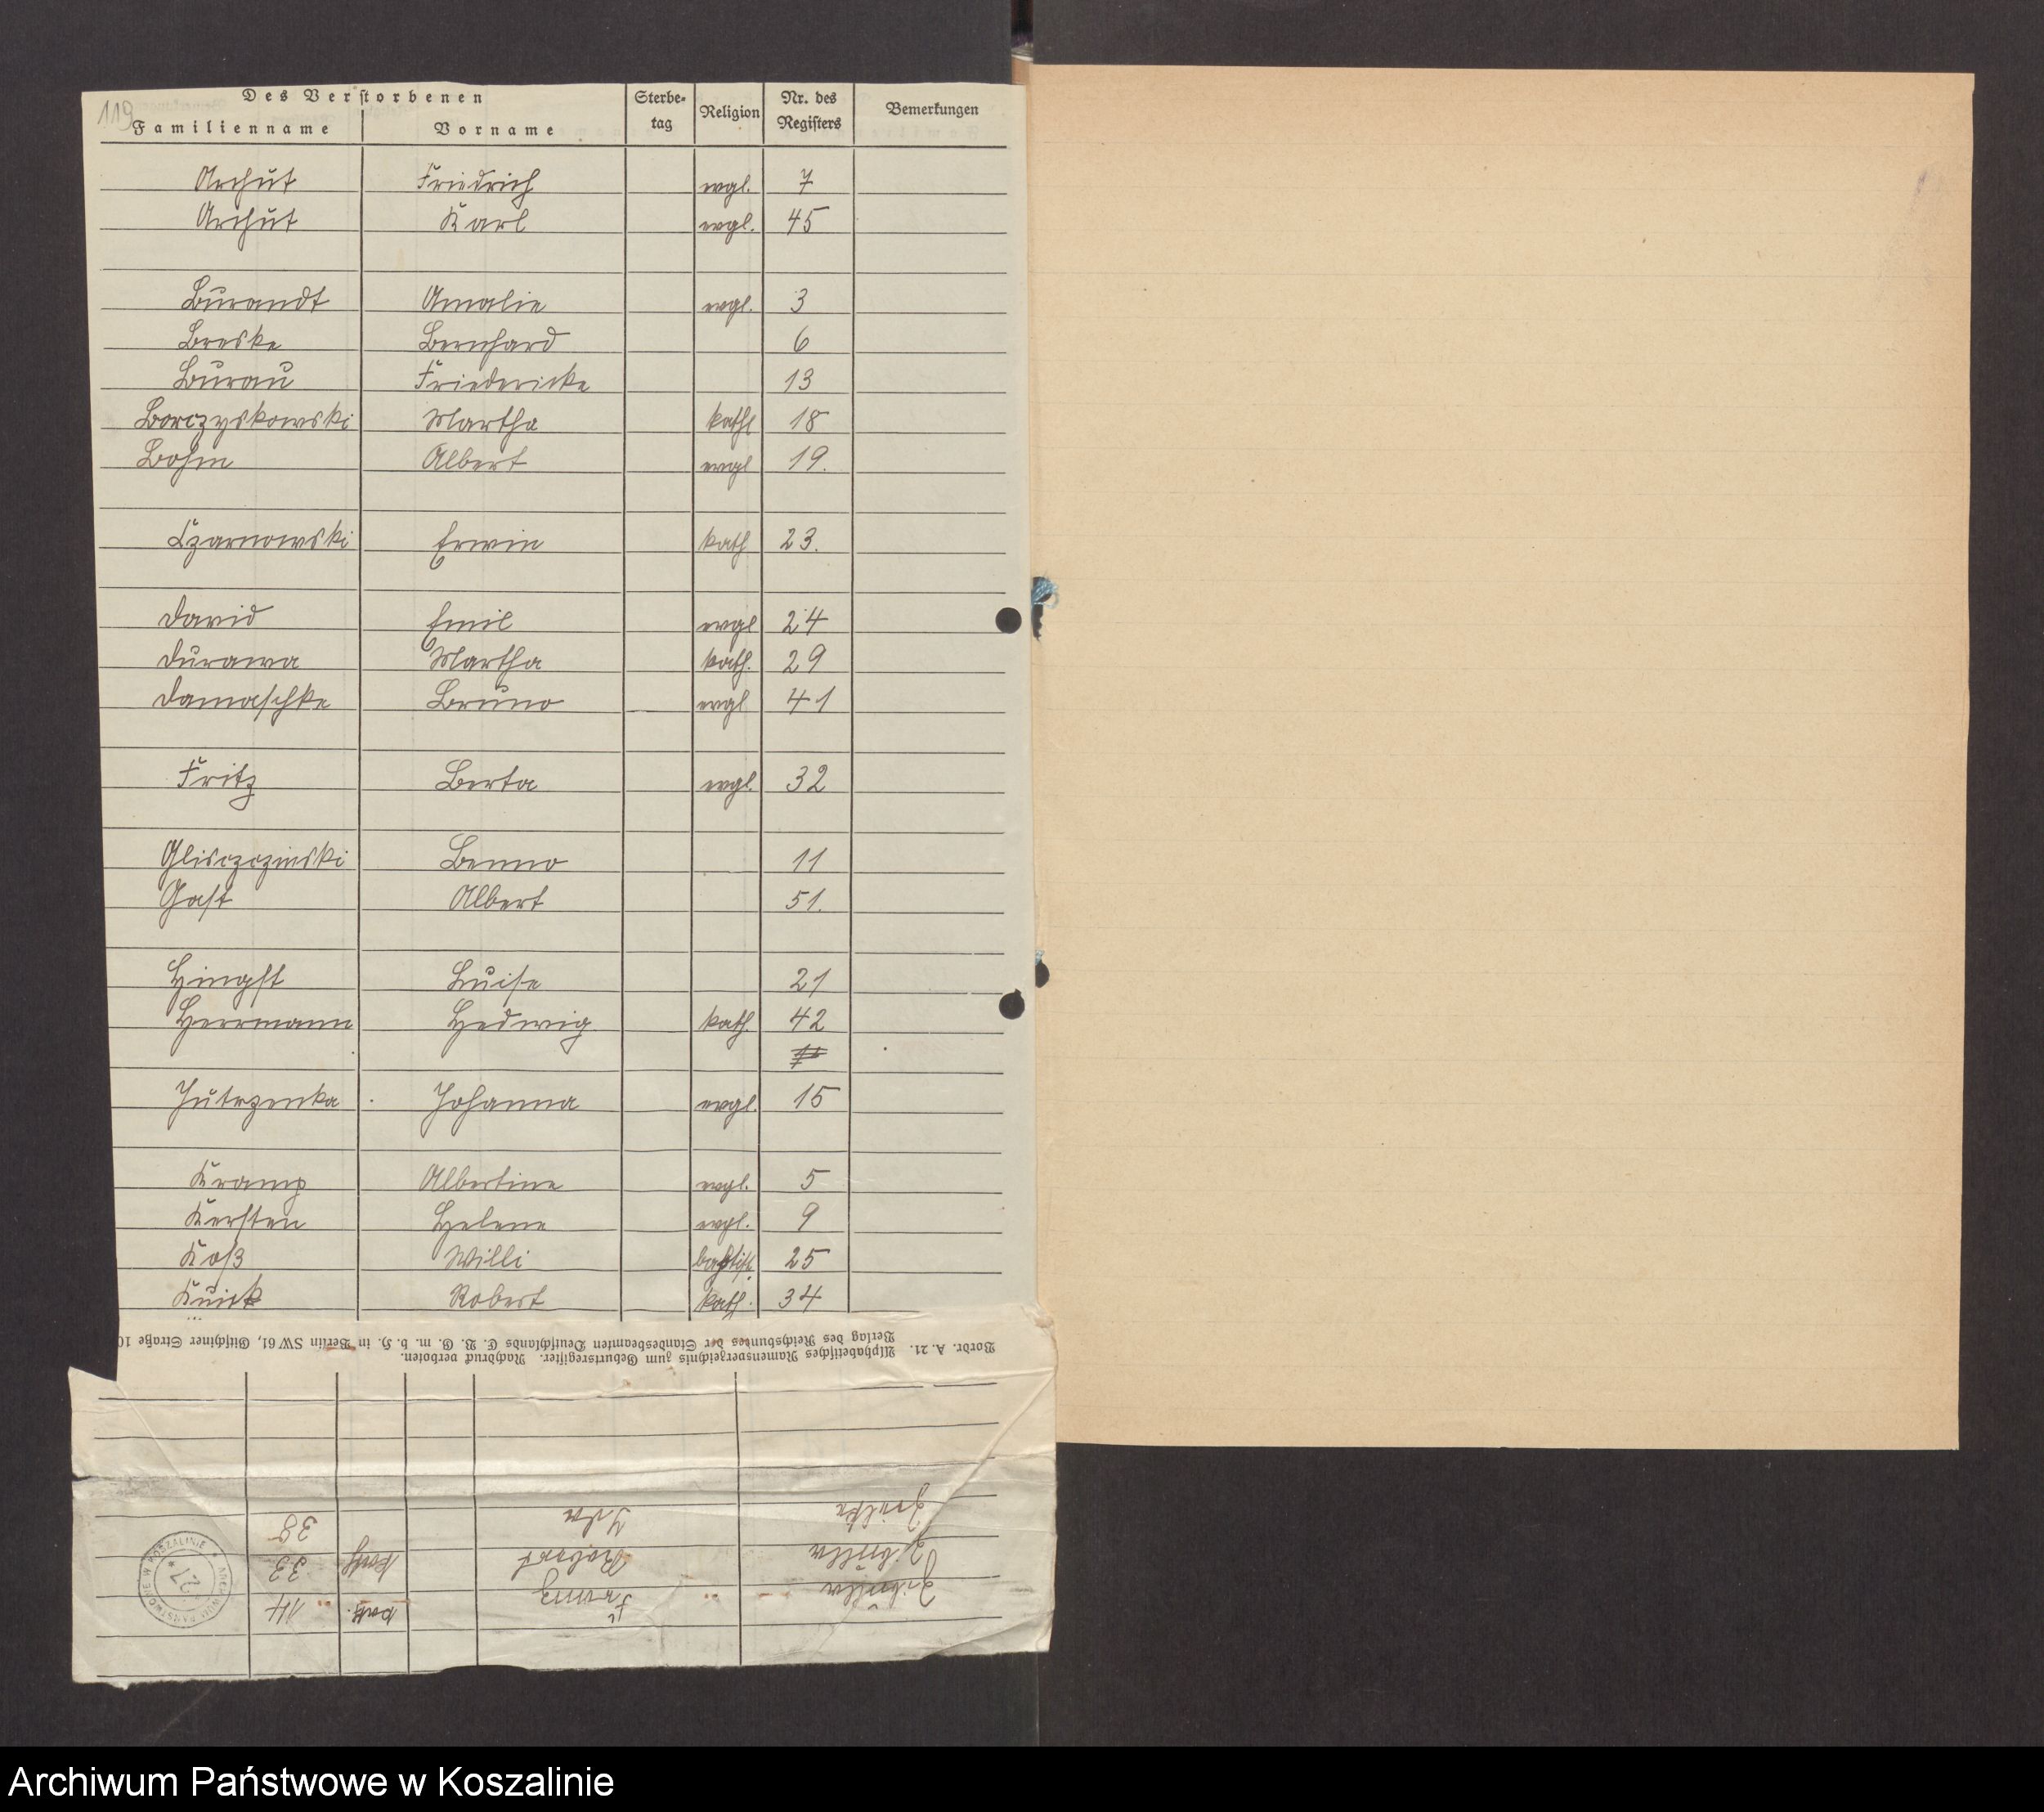 119
Des Verstorbenen Sterbe- Religion Nr. des Bemerkungen
Familienname Vorname tag Registers
Archut Friedrich evgl. 7
Archut Karl evgl. 45
Burandt Amalie evgl. 3
Breske Bernhard 6
Burau Friedericke 13
Borczyskowski Martha kathl 18
Bohm Albert evgl 19.
Czarnowski Erwin kath 23.
David Emil evgl 24
Durawa Martha kath. 29
Damaschke Bruno evgl 41
Fritz Berta evgl. 32
Glisczczinski Benno 11
Gast Albert 51.
Hingst Luise 21
Herrmann Hedwig kath. 42
Jutrzenka Johanna evgl. 15
Kramp Albertine evgl. 5
Kersten Helene evgl. 9
Koß Willi baptist. 25
Kuick Robert kath. 34
Vordr. A. 21. Alphabetisches Namensverzeichnis zum Geburtsregister. Nachdruck verboten.
Verlag des Reichsbundes der Standesbeamten Deutschlands E. V. G. m. b. H. in Berlin SW 61, Gitschiner Straße 10
Franz kath. 14
Robert kath 33
Ida 38
ARCHIWUM PAŃSTWOWE W KOSZALINIE
27
Archiwum Państwowe w Koszalinie